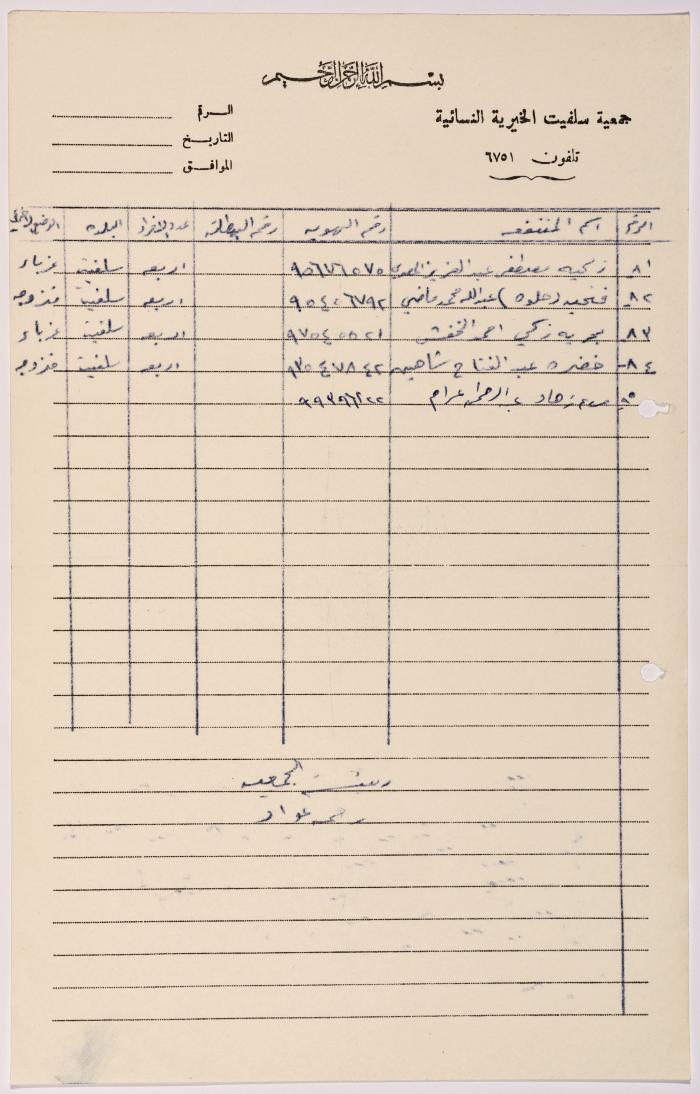 بسم الله الرحمن الرحيم
جمعية سلفيت الخيرية النسائية
تلفون ٦٧٥١
الرقم
التاريخ
الموافق
الرقم اسم المنتفعه رقم الهويه رقم البطاقة عدد الافراد البلده
٨١ زكيه مصطفى عبد العزيز ٩٥٦٧٦٥٧٥ اربعه سلفيت عزباء
٨٢ فتحيه (حلوه) عبدالله محمد ماضي ٩٥٤٢٦٧٩٢ اربعه سلفيت متزوجه
٨٣ بحريه زكي احمد الخفش ٩٧٥٤٥٥٢١ اربعه سلفيت عزباء
٨٤ خضره عبد الفتاح شاهين ٩٣٥٤٧٨٤٢ اربعه سلفيت متزوجه
٨٥ عبد الرحمن عزام ٩٩٣٩٦٢٢٢
رئيسة الجمعيه
عواد